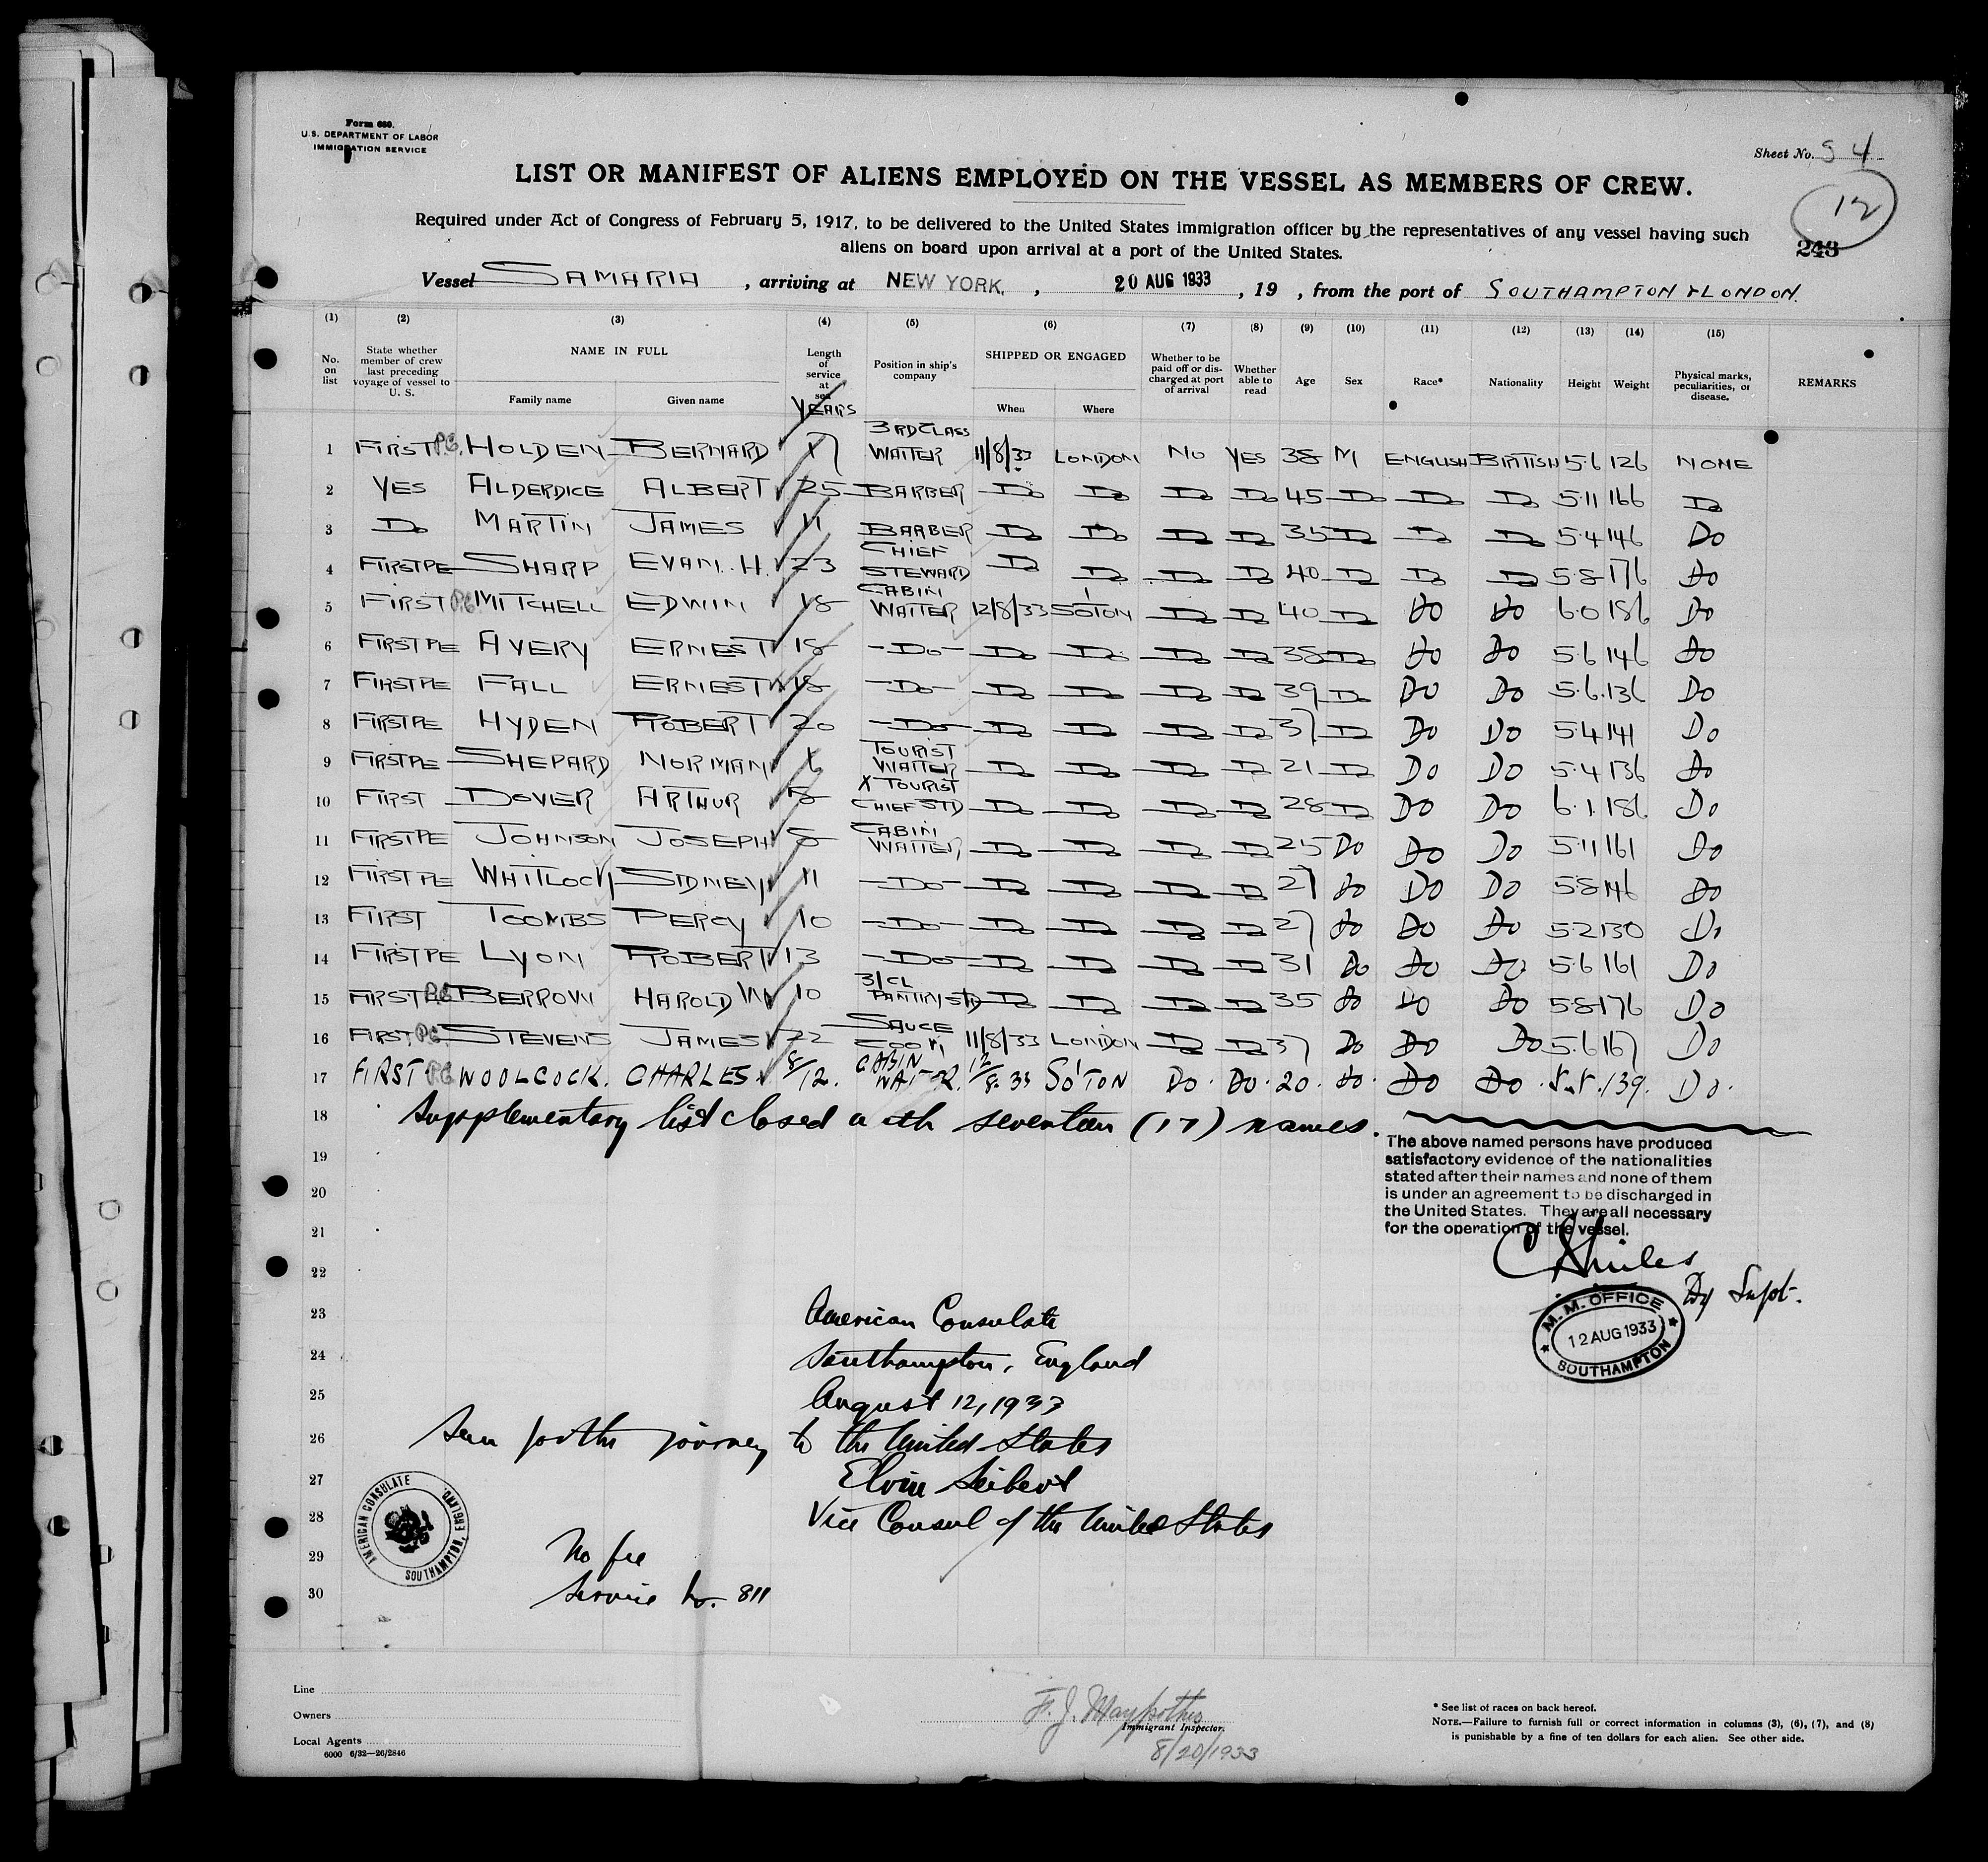 Form 680.
U.S. DEPARTMENT OF LABOR
IMMIGRATION SERVICE
Sheet No. S 4
12
243
LIST OR MANIFEST OF ALIENS EMPLOYED ON THE VESSEL AS MEMBERS OF CREW.
Required under Act of Congress of February 5, 1917, to be delivered to the United States immigration officer by the representatives of any vessel having such
aliens on board upon arrival at a port of the United States.
Vessel SAMARIA, arriving at NEW YORK, 20 AUG 1933, 19 , from the port of SOUTHAMPTON & LONDON.
(1) (2) (3) (4) (5) (6) (7) (8) (9) (10) (11) (12) (13) (14) (15)
No. on list State whether member of crew last preceding voyage of vessel to U. S. NAME IN FULL Family name Given name Length of service at sea YEARS Position in ship's company SHIPPED OR ENGAGED When Where Whether to be paid off or discharged at port of arrival Whether able to read Age Sex Race* Nationality Height Weight Physical marks, peculiarities, or disease. REMARKS
1 FIRST P.E. HOLDEN BERNARD 17 3RD CLASS WAITER 11/8/33 LONDON NO YES 38 M ENGLISH BRITISH 5.6 126 NONE
2 YES ALDERDICE ALBERT 25 BARBER Do Do Do Do 45 Do Do Do 5.11 166 Do
3 Do MARTIN JAMES 11 BARBER Do Do Do Do 35 Do Do Do 5.4 146 Do
4 FIRST PE SHARP EVAN. H. 23 CHIEF STEWARD Do Do Do Do 40 Do Do Do 5.8 176 Do
5 FIRST P.E. MITCHELL EDWIN 18 CABIN WAITER 12/8/33 SO'TON Do Do 40 Do Do Do 6.0 186 Do
6 FIRST PE AVERY ERNEST 18 -Do- Do Do Do Do 38 Do Do Do 5.6 146 Do
7 FIRST PE FALL ERNEST 18 -Do- Do Do Do Do 39 Do Do Do 5.6. 136 Do
8 FIRST PE HYDEN ROBERT 20 -Do- Do Do Do Do 37 Do Do Do 5.4 141 Do
9 FIRST PE SHEPARD NORMAN 6 TOURIST WAITER Do Do Do Do 21 Do Do Do 5.4 136 Do
10 FIRST DOVER ARTHUR 8 X TOURIST CHIEF STD Do Do Do Do 28 Do Do Do 6.1. 186 Do
11 FIRST PE JOHNSON JOSEPH 8 CABIN WAITER Do Do Do Do 25 Do Do Do 5.11 161 Do
12 FIRST PE WHITLOCK SIDNEY 11 -Do- Do Do Do Do 27 Do Do Do 5.8 146 Do
13 FIRST TOOMBS PERCY 10 -Do- Do Do Do Do 27 Do Do Do 5.2 130 Do
14 FIRST PE LYON ROBERT 13 -Do- Do Do Do Do 31 Do Do Do 5.6 161 Do
15 FIRST P.E. BERROW HAROLD W 10 3/CL PANTRY STD Do Do Do Do 35 Do Do Do 5.8 176 Do
16 FIRST PE STEVENS JAMES 22 SAUCE COOK 11/8/33 LONDON Do Do 37 Do Do Do 5.6 167 Do
17 FIRST PE WOOLCOCK. CHARLES. 8/12. CABIN WAITER. 12/8.33 SO'TON Do. Do. 20. Do. Do Do. 5.5. 139. Do.
18 Supplementary list closed with seventeen (17) names.
The above named persons have produced
satisfactory evidence of the nationalities
stated after their names and none of them
is under an agreement to be discharged in
the United States. They are all necessary
for the operation of the vessel.
19
20
21
22
Dy Supt.
M. M. OFFICE
12 AUG 1933
SOUTHAMPTON
23 American Consulate
24 Southampton, England
25 August 12, 1933
26 Seen for the journey to the United States
27 Elvin Seibert
28 Vice Consul of the United States
AMERICAN CONSULATE
SOUTHAMPTON, ENGLAND.
29 No fee
30 Service No. 811
Line
Owners
Local Agents
6000 6/32—26/2846
Immigrant Inspector.
8/20/1933
* See list of races on back hereof.
NOTE.—Failure to furnish full or correct information in columns (3), (6), (7), and (8)
is punishable by a fine of ten dollars for each alien. See other side.